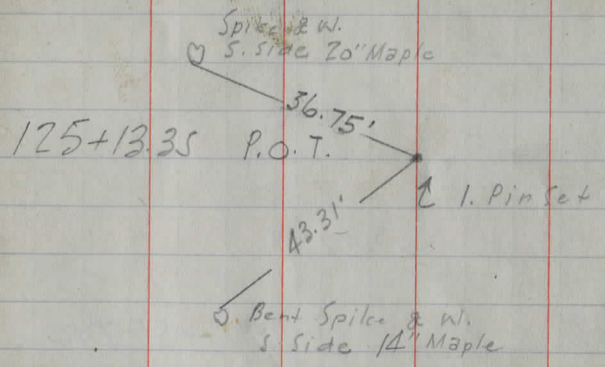 Spike & W.
S. Side 20" Maple
36.75'
125+13.35 P.O.T.
1. Pin Set
43.31'
Bent Spike & W.
S. Side 14" Maple